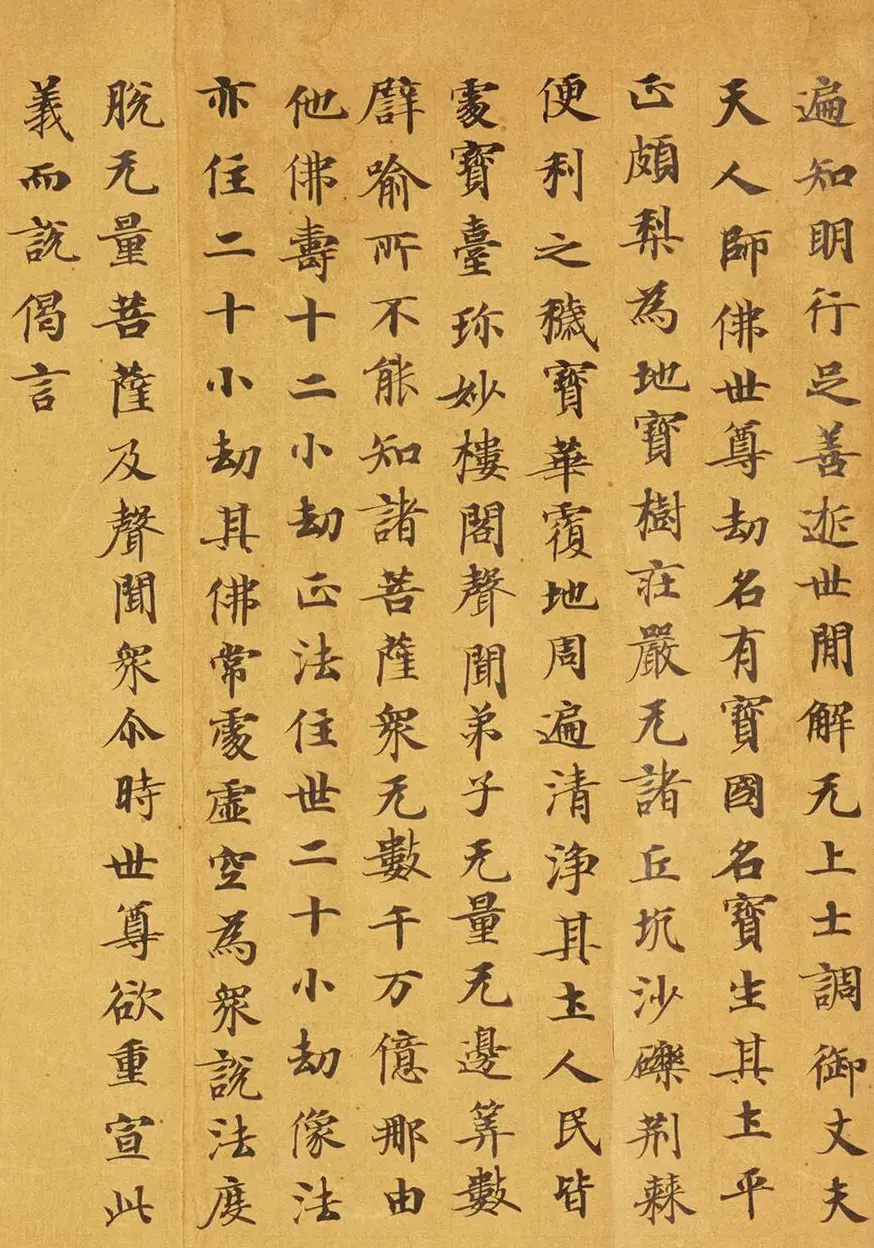 遍知明行足善逝世間解无上士調御丈夫
天人師佛世尊劫名有寶國名寶生其土平
正頗梨為地寶樹莊嚴无諸丘坑沙礫荊棘
便利之穢寶華覆地周遍清淨其土人民皆
處寶臺珎妙樓閣聲聞弟子无量无邊筭數
譬喻所不能知諸菩薩衆无數千万億那由
他佛壽十二小劫正法住世二十小劫像法
亦住二十小劫其佛常處虛空為衆說法度
脫无量菩薩及聲聞衆尒時世尊欲重宣此
義而說偈言